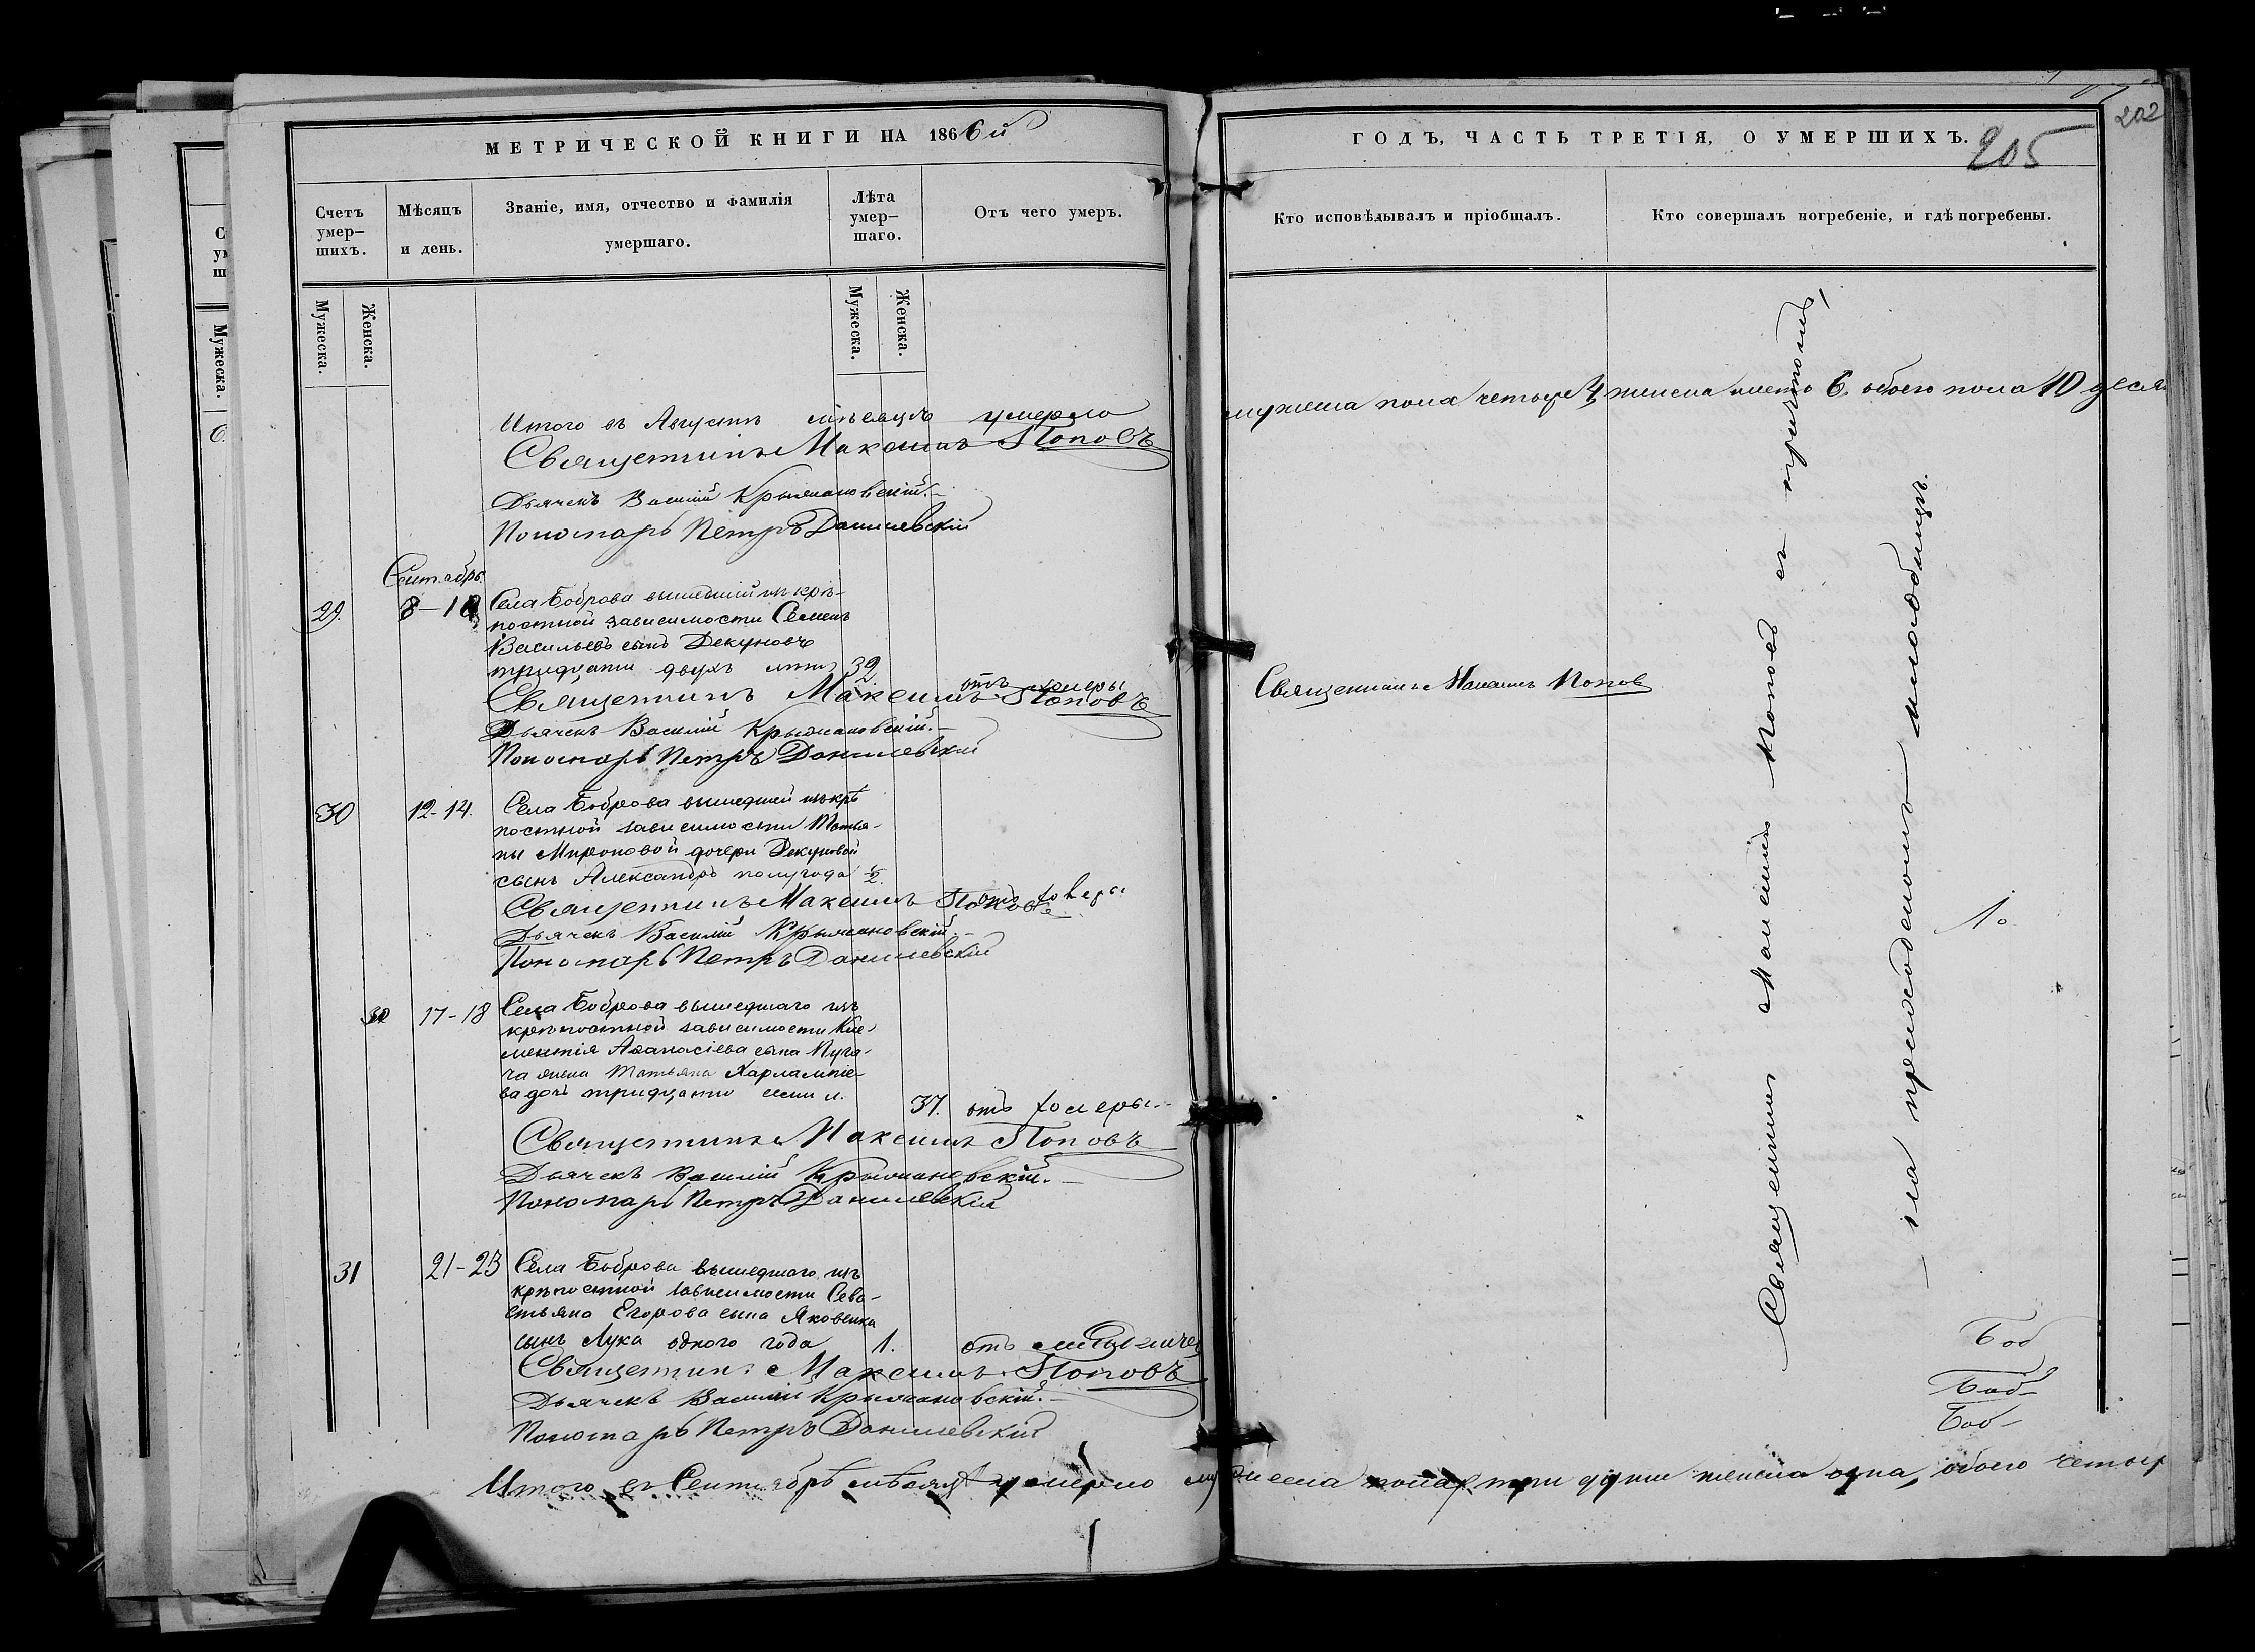 МЕТРИЧЕСКОЙ КНИГИ НА 1866й
Счетъ умер-шихъ.
Мѣсяцъ и день.
Званіе, имя, отчество и фамилія умершаго.
Лѣта умер-шаго.
Отъ чего умеръ.
Мужеска.
Женска.
Мужеска.
Женска.
Итого въ Августѣ мѣсяцѣ умерло
Священникъ Максимъ Поповъ
Дьячекъ Василій Крыжановскій.
Пономарь Петръ Данилевскій
Сентябрь.
29. 8-10 Села Боброва вышедшій изъ крѣ-
постной зависимости Семенъ
Васильевъ сынъ Декуновъ
тридцати двухъ лѣтъ 32 отъ холеры
Священникъ Максимъ Поповъ
Дьячекъ Василій Крыжановскій.
Пономарь Петръ Данилевскій
30 12-14. Села Боброва вышедшей изъ крѣ
постной зависимости Татья-
ны Мироновой дочери Декуновой
сынъ Александръ полугода ½ отъ холеры
Священникъ Максимъ Поповъ
Дьячекъ Василій Крыжановскій.
Пономарь Петръ Данилевскій
17-18 Села Боброва вышедшаго изъ
крѣпостной зависимости Кле-
ментія Аѳанасіева сына Пуга-
ча жена Татьяна Харлампіе-
ва дочь тридцати семи л. 37. отъ холеры
Священникъ Максимъ Поповъ
Дьячекъ Василій Крыжановскій.
Пономарь Петръ Данилевскій
31 21-23 Села Боброва вышедшаго изъ
крѣпостной зависимости Сева-
стьяна Егорова сына Яковенка
сынъ Лука одного года 1. отъ
Священникъ Максимъ Поповъ
Дьячекъ Василій Крыжановскій.
Пономарь Петръ Данилевскій
Итого въ Сентябрѣ мѣсяцѣ умерло мужеска пола три души женска одна, обоего четыр
202
ГОДЪ, ЧАСТЬ ТРЕТІЯ, О УМЕРШИХЪ.
205
Кто исповѣдывалъ и пріобщалъ.
Кто совершалъ погребеніе, и гдѣ погребены.
мужеска пола четыре 4, женска шесть 6. обоего пола 10 деся
Священникъ Максимъ Попов
Священникъ Максимъ Поповъ съ причтомъ,
на приходскомъ кладбищѣ.
Боб
Боб-
Боб-